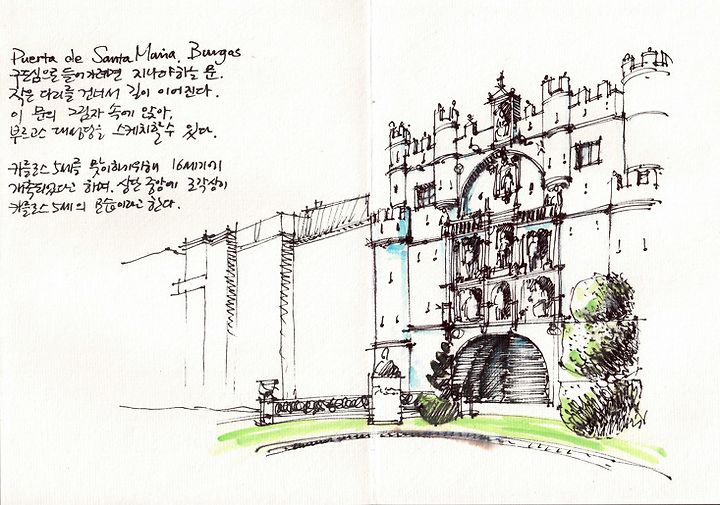 Puerta de Santa Maria, Burgos
구도심으로 들어가려면 지나야하는 문.
작은 다리를 건너서 길이 이어진다.
이 문의 그림자 속에 앉아,
부르고스 대성당을 스케치할수 있다.
카를로스 5세를 맞이하기위해 16세기에
개축되었다고 하며, 상단 중앙에 조각상이
카를로스 5세의 모습이라고 한다.